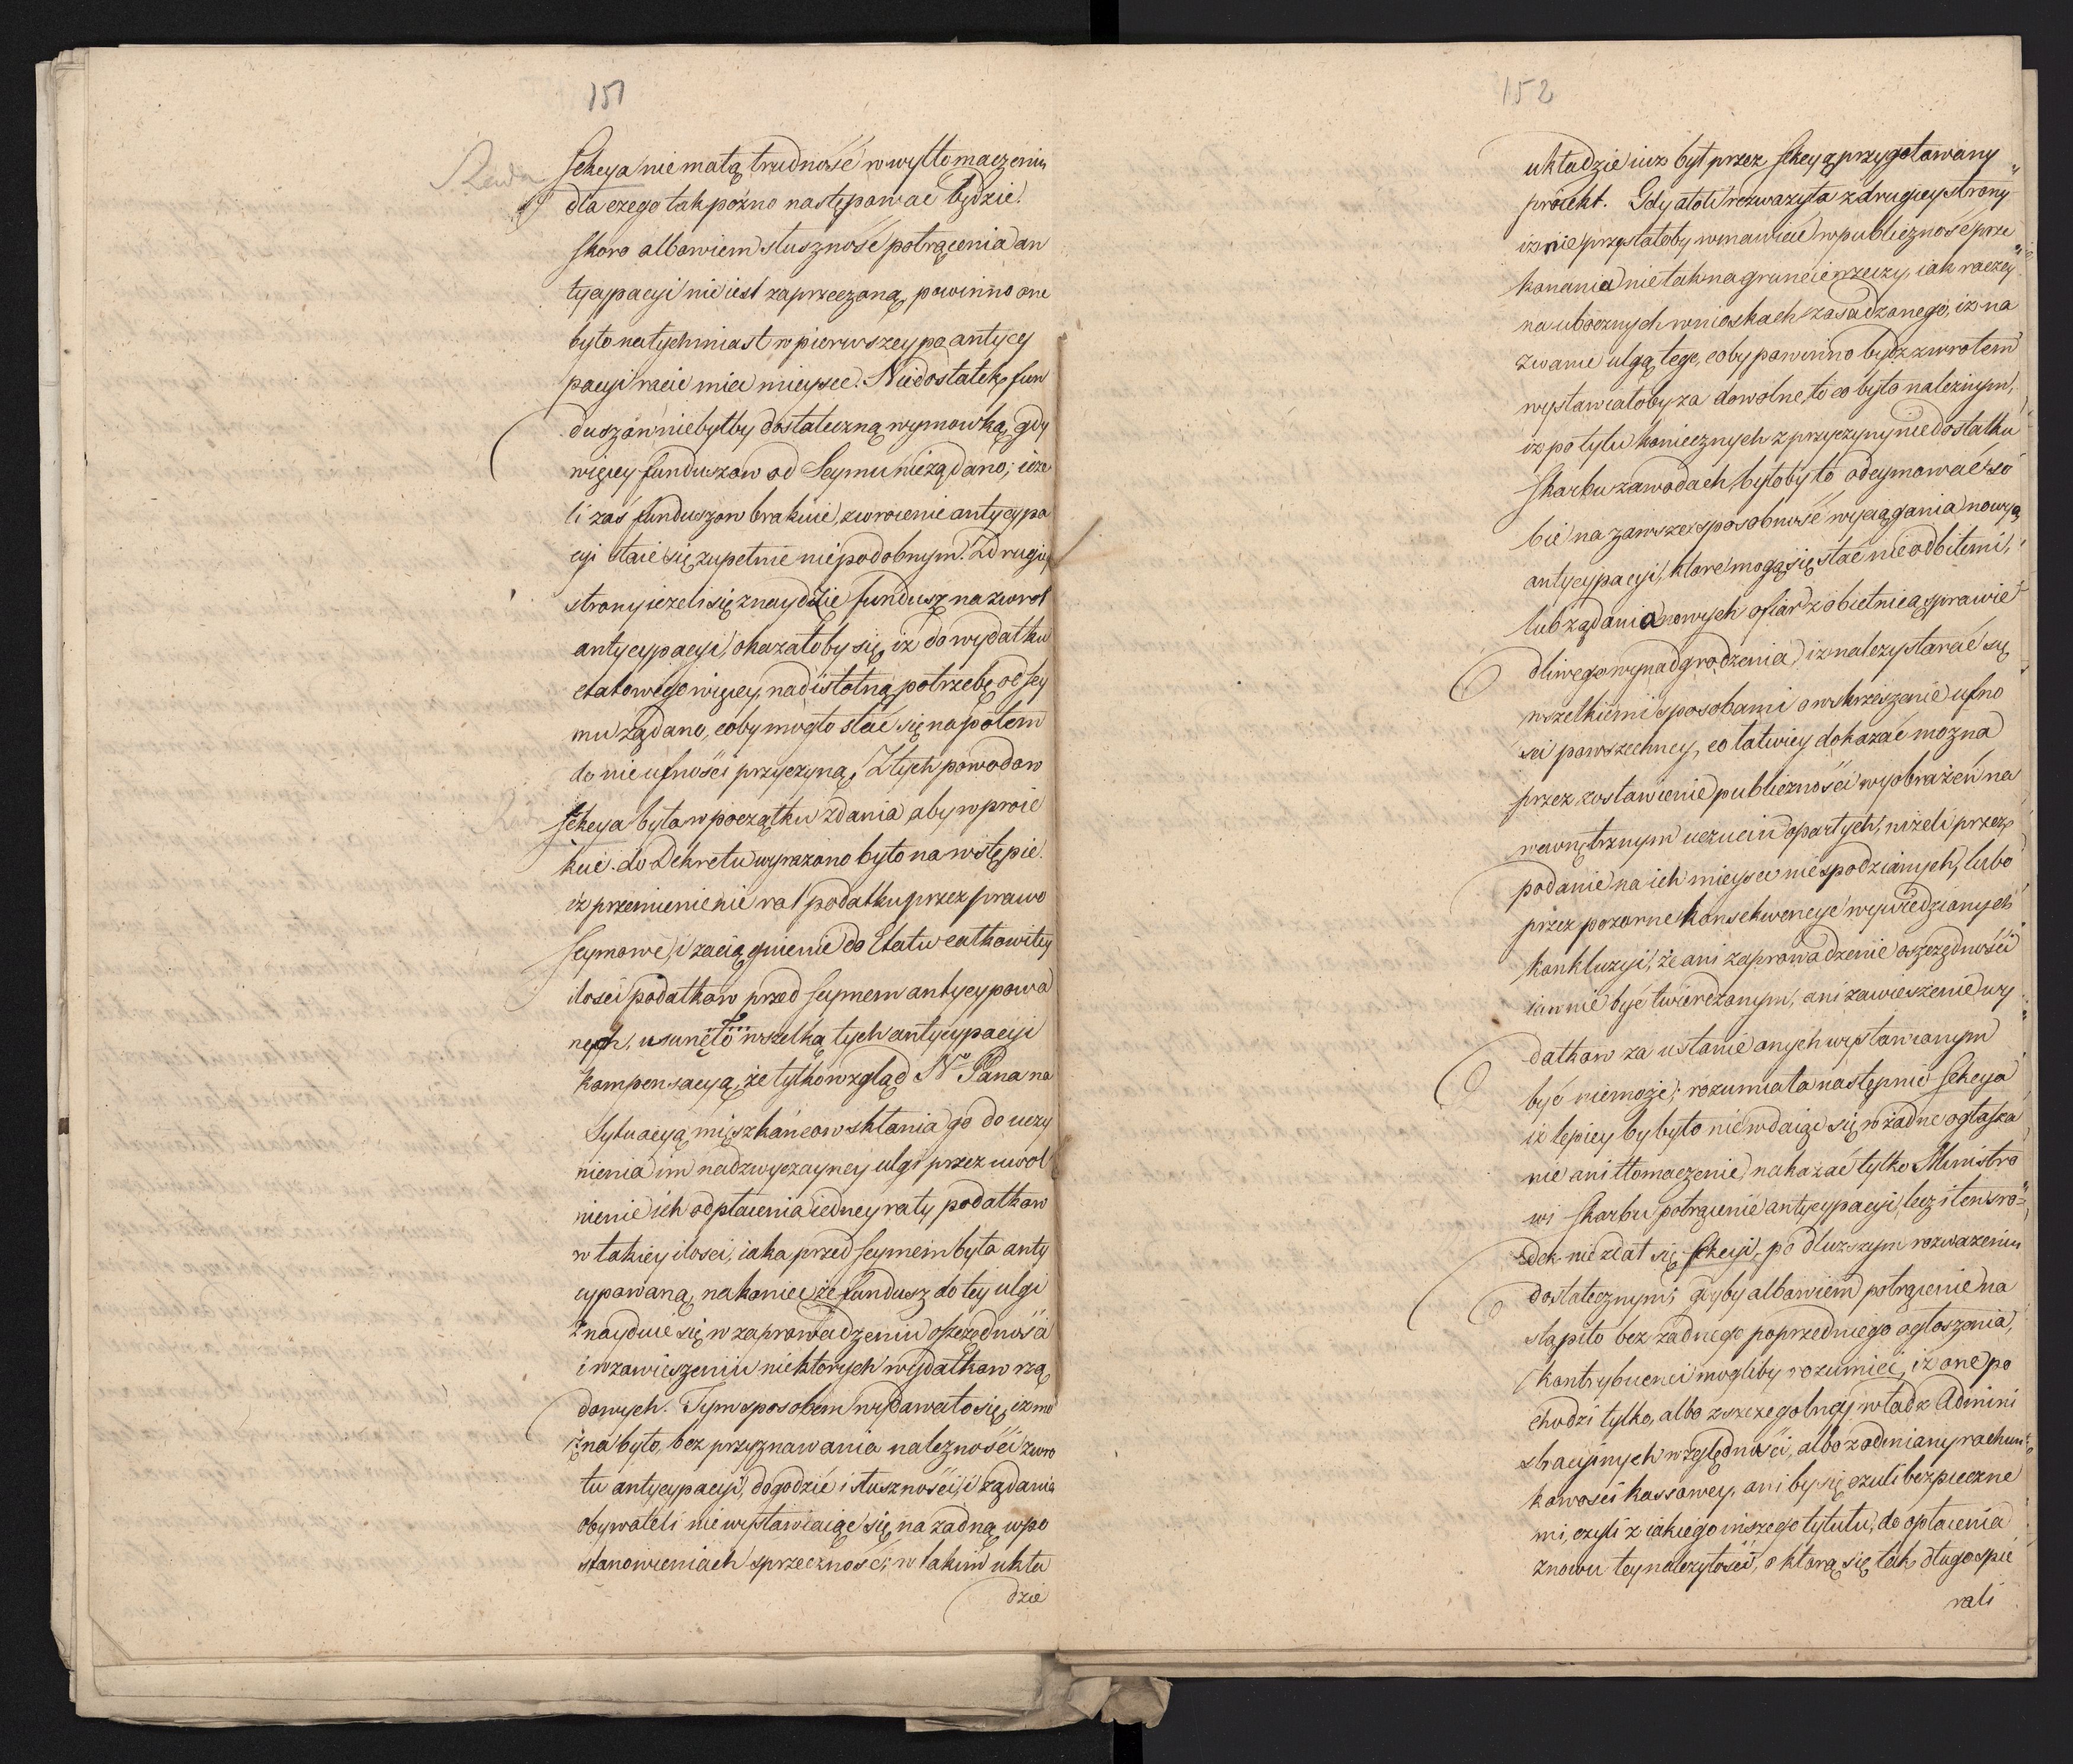 151
Sekcya nie małą trudność w wytłomaczeniu
dla czego tak poźno następować będzie!
skoro albowiem słuszność potrącenia an
tycypacyi nie iest zaprzeczoną, powinno one
było natychmiast w pierwszey po antycy
pacyi racie mieć mieysce. Niedostatek fun
duszow nie byłby dostateczną wymowką, gdy
więcey funduszow od Seymu nie żądano; ieże
li zaś funduszow brakuie, zwrocenie antycypa
cyi staie się zupełnie niepodobnym. Z drugiey
strony ieżeli się znaydzie fundusz na zwrot
antycypacyi, okazałoby się, iż do wydatku
etatowego więcey nad istotną potrzebę od Sey
mu żądano, coby mogło stać się na potem
do nieufności przyczyną. Z tych powodow
Sekcya była w początku zdania aby w proie
kcie do Dekretu wyrażono było na wstępie.
iż przemienienie rat podatku przez prawo
Seymowe, i zaciągnienie do Etatu całkowitey
ilości podatkow przed seymem antycypowa
nych, usunęło wszelką tych antycypacyi
kompensacyą, że tylko wzgląd N° Pana na
Sytuacyą mieszkańcow skłania go do uczy
nienia im nadzwyczayney ulgi przez uwol
nienie ich od płacenia iedney raty podatkow
w takiey ilości, iaka przed seymem była anty
cypowaną, nakoniec że fundusz do tey ulgi
znayduie się w zaprowadzeniu oszczędności
i w zawieszeniu niektorych wydatkow rzą
dowych. Tym sposobem wydawało się, iż mo
żna było, bez przyznawania należności zwro
tu antycypacyi, dogodzić i słuszności, i żądaniu
obywateli nie wystawiaiąc się na żadną w po
stanowieniach sprzeczność; w takim ukła
dzie
152
układzie iuż był przez Sekcyą przygotowany
proiekt. Gdy atoli rozważyła z drugiey strony
iż nie przystałoby wmawiać w publiczność prze
konania nie tak na gruncie rzeczy, iak raczey
na ubocznych wnioskach zasadzonego, iż na
zwanie ulgą tego, coby powinno bydz zwrotem
wystawiałoby za dowolne, to co było należnym,
iż po tylu koniecznych z przyczyny niedostatku
Skarbu zawodach, byłoby to odeymować so
bie na zawsze sposobność wyciągania nowych
antycypacyi, ktore mogą się stać nieodbitemi,
lub żądania nowych ofiar z obietnicą sprawie
dliwego wynadgrodzenia, iż należy starać się
wszelkiemi sposobami o wskrzeszenie ufno
ści powszechney, co łatwiey dokazać można
przez zostawienie publiczności wyobrażeń na
wewnętrznym uczuciu opartych, niżeli przez
podanie na ich mieysce niespodzianych, lubo
przez pozorne konsekwencye wywiedzionych
konkluzyi, że ani zaprowadzenie oszczędności
iawnie być twierdzonym, ani zawieszenie wy
datkow za ustanie onych wystawianym
być niemoże; rozumiała następnie Sekcya
iż lepiey by było nie wdaiąc się w żadne ogłasza
nie ani tłomaczenie, nakazać tylko Ministro
wi Skarbu potrącenie antycypacyi, lecz i ten śro=
dek nie zdał się Sekcyi, po dłuższym rozważeniu
dostatecznym; gdyby albowiem potrącenie na
stąpiło bez żadnego poprzedniego ogłoszenia,
kontrybuenci mogliby rozumieć, iż one po
chodzi tylko, albo z szczegolney władz Admini
stracyinych względności, albo z odmiany rachun=
kowości kassowey, ani by się czuli bezpieczne
mi, czyli z iakiego inszego tytułu, do opłacenia
znowu tey należytości, o ktorą się tak długo spie
rali